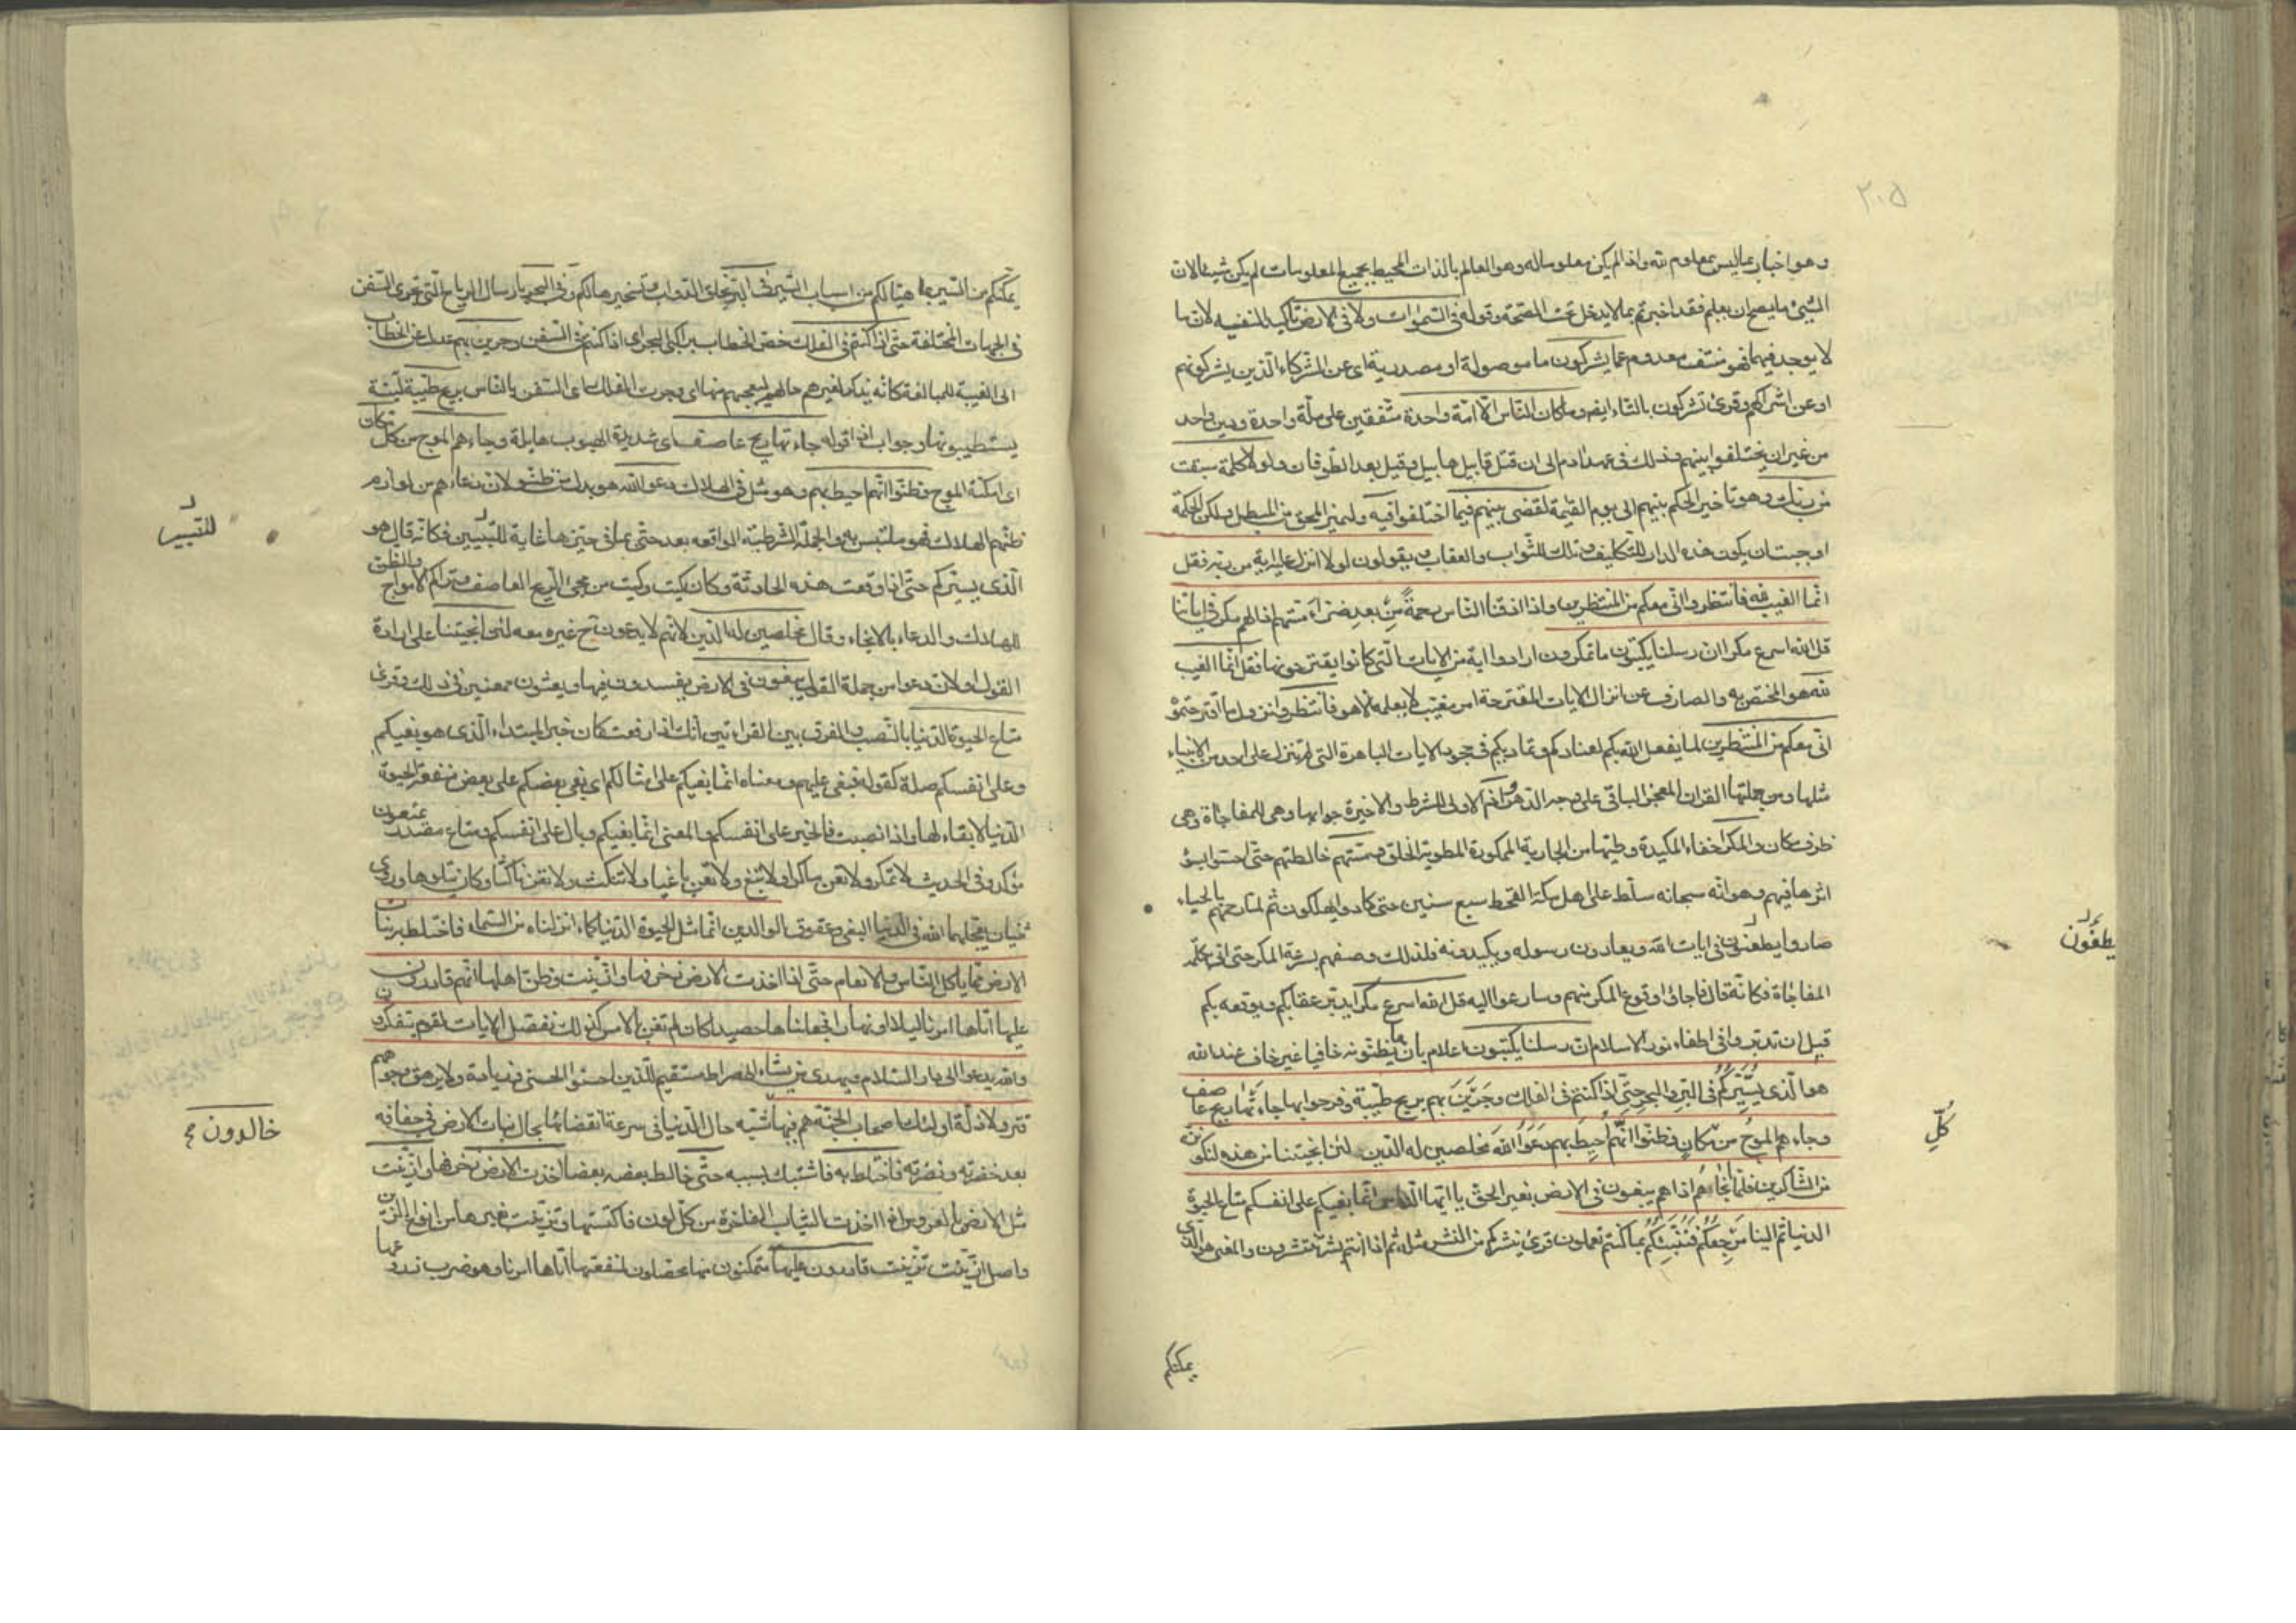 ٢٠٥
وهو اخبار بما ليس بمعلوم لله واذا لم يكن معلوما له وهو العالم بالذات المحيط بجميع المعلومات لم يكن شيئا لان
الشيء ما يصح ان يعلم فقد اخبرتم بما لا يدخل تحت الصحة وقوله في السموات ولا في الارض تاكيد لنفيه لان ما
لا يوجد فيهما فهو منتف معدوم عما يشركون ما موصولة او مصدرية اى عن الشركاء الذين يشركونهم
او عن اشراكهم وقرئ تشركون بالتاء ايضا وما كان الناس الا امة واحدة متفقين على ملة واحدة ودين واحد
من غير ان يختلفوا بينهم وذلك في عهد ادم الى ان قتل قابيل هابيل وقيل بعد الطوفان ولولا كلمة سبقت
من ربك وهو تاخير الحكم بينهم الى يوم القيمة لقضى بينهم فيما اختلفوا فيه وليميز المحق من المبطل ولكن الحكمة
اوجبت ان يكون هذه الدار للتكليف وتلك للثواب والعقاب ويقولون لولا انزل عليه اية من ربه فقل
انما الغيب لله فانتظروا انى معكم من المنتظرين واذا اذقنا الناس رحمة من بعد ضراء مستهم اذا لهم مكر في اياتنا
قل الله اسرع مكرا ان رسلنا يكتبون ما تمكرون ارادوا اية من الايات التي كانوا يقترحونها فقل انما الغيب
لله هو المختص به والصارف عن انزال الايات المقترحة امر مغيب لا يعلمه الا هو فانتظروا نزول ما اقترحتموه
انى معكم من المنتظرين لما يفعل الله بكم لعنادكم وتماديكم في جحود الايات الباهرة التي لم ينزل على احد من الانبياء
مثلها ومن جملتها القران المعجز الباقى على وجه الدهر واذا الاولى للشرط والاخيرة جوابها وهى للمفاجاة وهى
ظرف مكان والمكر اخفاء المكيدة وطيها من الجارية الممكورة المطوية الخلق ومستهم خالطتهم حتى احسوا بسوء
اثرها فيهم وهو انه سبحانه سلط على اهل مكة القحط سبع سنين حتى كادوا يهلكون ثم لما رحمهم بالحياء
صاروا يطعنون في ايات الله ويعادون رسوله ويكيدونه فلذلك وصفهم بسرعة المكر حتى اتى بكلمة
المفاجاة فكانه قال فاجاؤا وقوع المكر منهم وسارعوا اليه قل الله اسرع مكرا يدبر عقابكم ويوقعه بكم
قبل ان تدبروا في اطفاء نور الاسلام ان رسلنا يكتبون اعلام بان ما يظنونه خافيا غير خاف عند الله
هو الذى يسيركم في البر والبحر حتى اذا كنتم في الفلك وجرين بهم بريح طيبة وفرحوا بها جاءتها ريح عاصف
وجاءهم الموج من مكان فظنوا انهم احيط بهم دعوا الله مخلصين له الدين لئن انجيتنا من هذه لنكونن
من الشاكرين فلما انجاهم اذا هم يبغون في الارض بغير الحق يا ايها الناس انما بغيكم على انفسكم متاع الحيوة
الدنيا ثم الينا مرجعكم فننبئكم بما كنتم تعملون قرئ ينشركم من النشر مثله ثم اذا انتم بشر تنتشرون والمعنى هو الذى
يطعنون
كل
يمكنكم
يمكنكم من السير بما هيا لكم من اسباب السير في البر بخلق الدواب وتسخيرها لكم وفي البحر بارسال الرياح التي تجرى السفن
في الجهات المختلفة حتى اذا كنتم في الفلك خص الخطاب براكبى البحر اى اذا كنتم في السفن وجرين بهم عدل عن الخطاب
الى الغيبة للمبالغة كانه يذكر لغيرهم حالهم ليعجبهم منها اى وجرت الفلك اى السفن بالناس بريح طيبة لينة
يستطيبونها وجواب اذا قوله جاءتها ريح عاصف اى شديدة الهبوب هايلة وجاءهم الموج من كل مكان
اى امكنة الموج وظنوا انهم احيط بهم وهو مثل في الهلاك دعوا الله هو بدل من ظنوا لان دعاءهم من لوازم
ظنهم الهلاك فهو ملتبس به والجملة الشرطية الواقعة بعد حتى بما في حيزها غاية للتسيير فكانه قال هو
الذى يسيركم حتى اذا وقعت هذه الحادثة وكان كيت وكيت من مجئ الريح العاصف وتراكم الامواج والظن
للهلاك والدعاء بالانجاء وقال مخلصين له الدين لانهم لا يدعون ح غيره معه لئن انجيتنا على ارادة
القول او لان دعوا من جملة القول يبغون في الارض يفسدون فيها ويعيثون ممعنين في ذلك وقرئ
متاع الحيوة الدنيا بالنصب والفرق بين القراءتين انك اذا رفعت كان خبر المبتداء الذى هو بغيكم
وعلى انفسكم صلة كقوله فبغى عليهم ومعناه انما بغيكم على امثالكم اى بغى بعضكم على بعض منفعة الحيوة
الدنيا لا بقاء لها واذا نصبت فالخبر على انفسكم والمعنى انما بغيكم وبال على انفسكم ومتاع مصدر
مؤكد وفي الحديث لا تمكر ولا تعن ماكرا ولا تبغ ولا تعن باغيا ولا تنكث ولا تعن ناكثا وكان يتلوها وروى
ثنتان يعجلهما الله في الدنيا البغى وعقوق الوالدين انما مثل الحيوة الدنيا كماء انزلناه من السماء فاختلط به نبات
الارض مما ياكل الناس والانعام حتى اذا اخذت الارض زخرفها وازينت وظن اهلها انهم قادرون
عليها اتاها امرنا ليلا او نهارا فجعلناها حصيدا كان لم تغن بالامس كذلك نفصل الايات لقوم يتفكرون
والله يدعو الى دار السلام ويهدى من يشاء الى صراط مستقيم للذين احسنوا الحسنى وزيادة ولا يرهق وجوههم
قتر ولا ذلة اولئك اصحاب الجنة هم فيها شبه حال الدنيا في سرعة انقضائها بحال نبات الارض في جفافه
بعد خضرته ونضرته فاختلط به فاشتبك بسببه حتى خالط بعضه بعضا اخذت الارض زخرفها وازينت
مثل الارض بالعروس اذا اخذت الثياب الفاخرة من كل لون فاكتستها وتزينت بغيرها من انواع الزين
واصل ازينت تزينت قادرون عليها متمكنون منها محصلون لمنفعتها اتاها امرنا وهو ضرب زروعها
للتسيير
خالدون صح